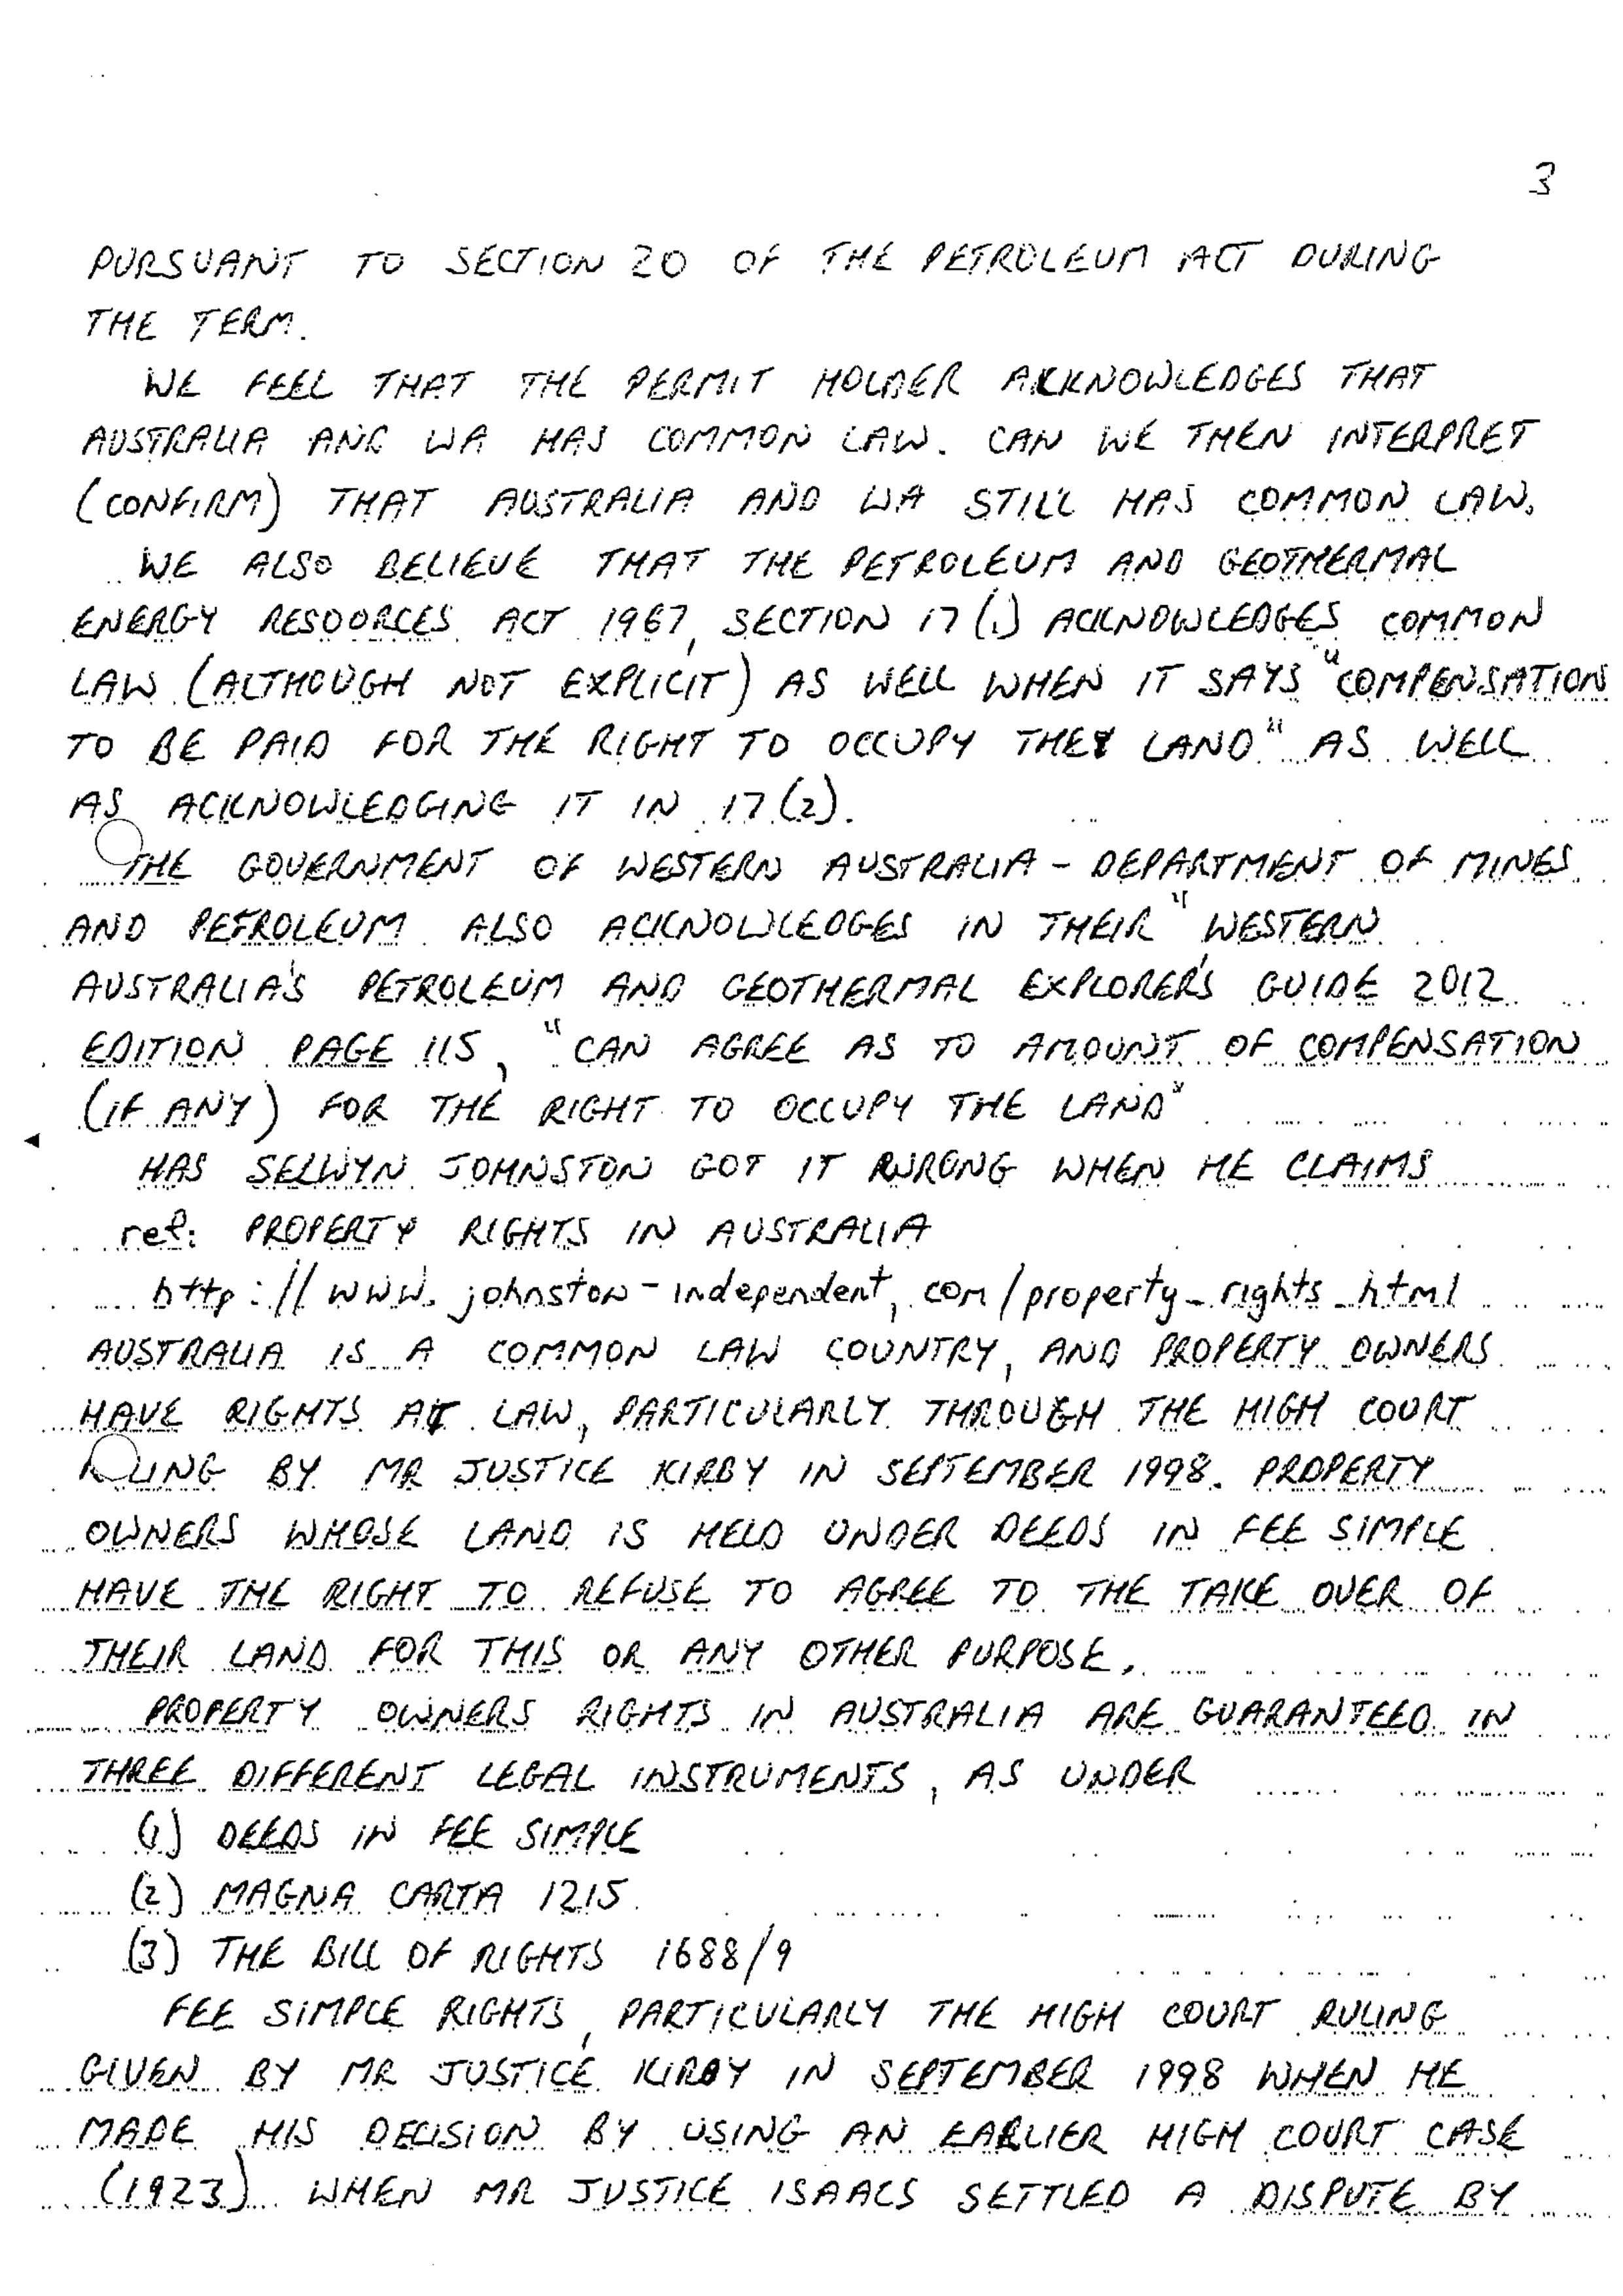 3
PURSUANT TO SECTION 20 OF THE PETROLEUM ACT DURING
THE TERM.
WE FEEL THAT THE PERMIT HOLDER ACKNOWLEDGES THAT
AUSTRALIA AND WA HAS COMMON LAW. CAN WE THEN INTERPRET
(CONFIRM) THAT AUSTRALIA AND WA STILL HAS COMMON LAW.
WE ALSO BELIEVE THAT THE PETROLEUM AND GEOTHERMAL
ENERGY RESOORCES ACT 1967, SECTION 17(1) ACKNOWLEDGES COMMON
LAW (ALTHOUGH NOT EXPLICIT) AS WELL WHEN IT SAYS "COMPENSATION
TO BE PAID FOR THE RIGHT TO OCCUPY THE LAND" AS WELL
AS ACKNOWLEDGING IT IN 17(2).
THE GOVERNMENT OF WESTERN AUSTRALIA - DEPARTMENT OF MINES
AND PETROLEUM ALSO ACKNOWLEDGES IN THEIR "WESTERN
AUSTRALIA'S PETROLEUM AND GEOTHERMAL EXPLORER'S GUIDE 2012
EDITION PAGE 115, "CAN AGREE AS TO AMOUNT OF COMPENSATION
(IF ANY) FOR THE RIGHT TO OCCUPY THE LAND"
HAS SELWYN JOHNSTON GOT IT WRONG WHEN HE CLAIMS
ref: PROPERTY RIGHTS IN AUSTRALIA
http://www.johnston-independent,com/property_rights_html
AUSTRALIA IS A COMMON LAW COUNTRY, AND PROPERTY OWNERS
HAVE RIGHTS AT LAW, PARTICULARLY THROUGH THE HIGH COURT
RULING BY MR JUSTICE KIRBY IN SEPTEMBER 1998. PROPERTY
OWNERS WHOSE LAND IS HELD UNDER DEEDS IN FEE SIMPLE
HAVE THE RIGHT TO REFUSE TO AGREE TO THE TAKE OVER OF
THEIR LAND FOR THIS OR ANY OTHER PURPOSE.
PROPERTY OWNERS RIGHTS IN AUSTRALIA ARE GUARANTEED IN
THREE DIFFERENT LEGAL INSTRUMENTS, AS UNDER
(1) DEEDS IN FEE SIMPLE
(2) MAGNA CARTA 1215
(3) THE BILL OF RIGHTS 1688/9
FEE SIMPLE RIGHTS, PARTICULARLY THE HIGH COURT RULING
GIVEN BY MR JUSTICE KIRBY IN SEPTEMBER 1998 WHEN HE
MADE HIS DECISION BY USING AN EARLIER HIGH COURT CASE
(1923) WHEN MR JUSTICE ISAACS SETTLED A DISPUTE BY